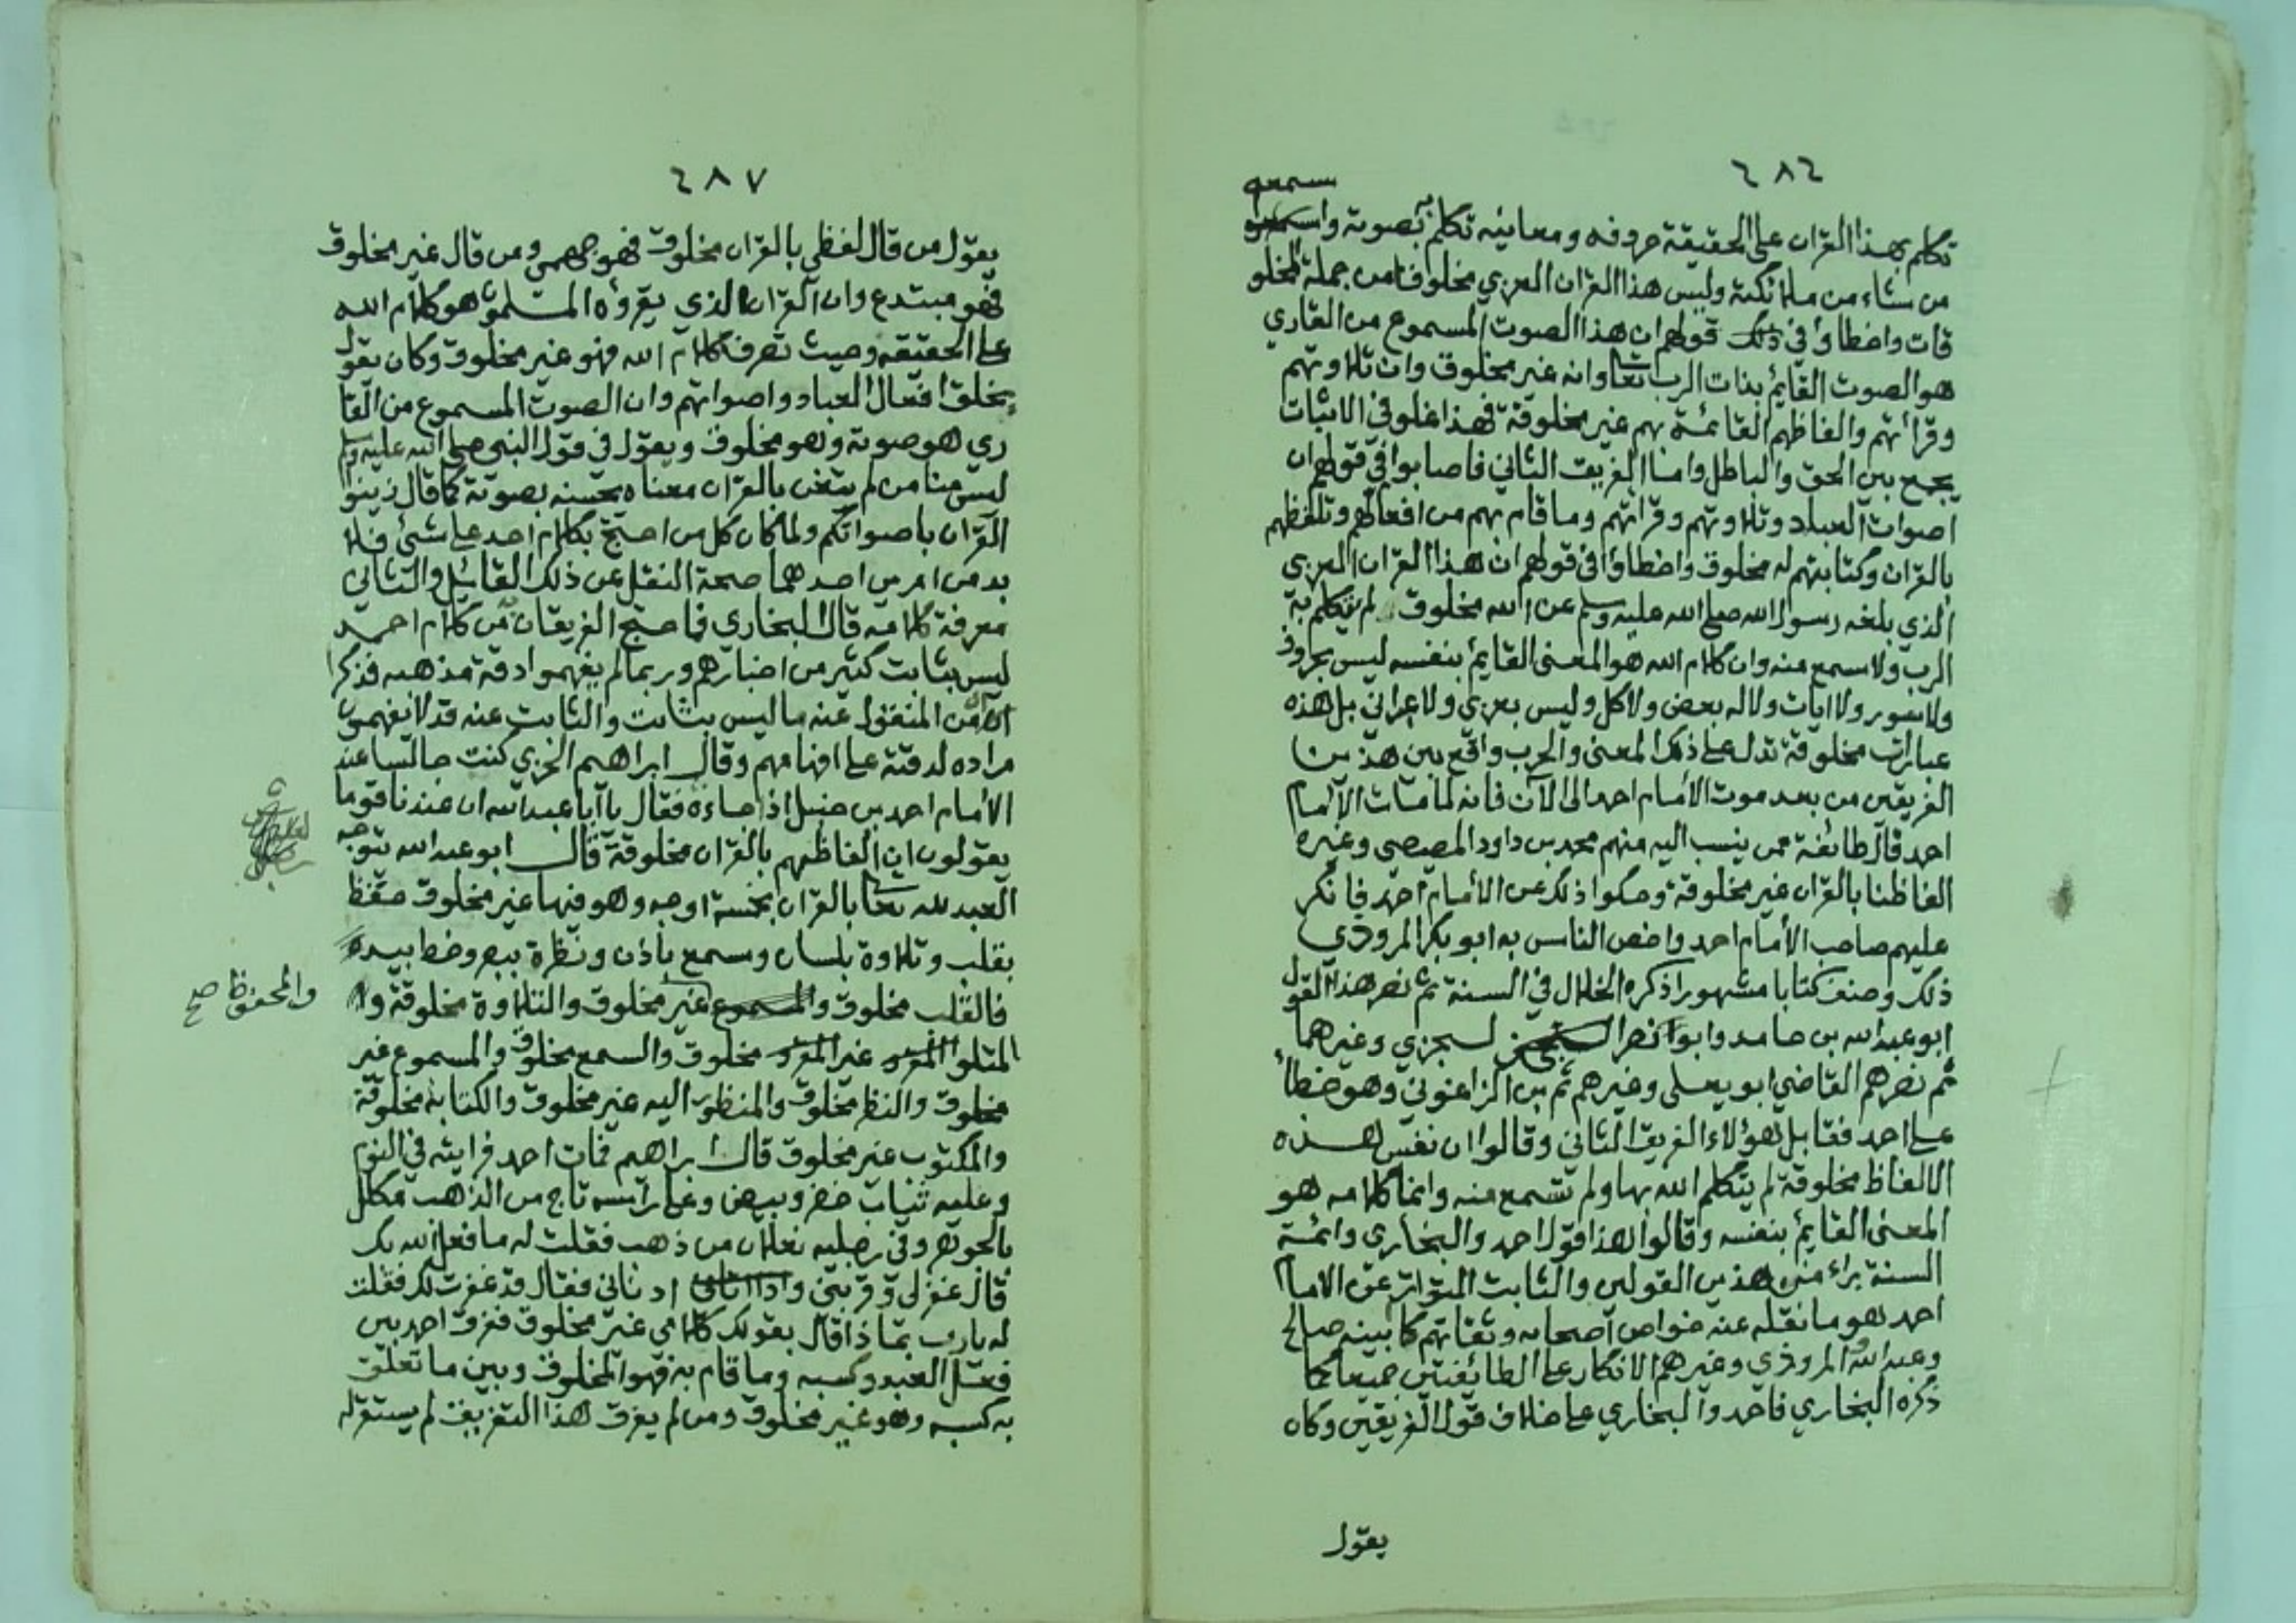 ٤٨٦
سمعه
تكلم بهذا القران على الحقيقة حروفه ومعانيه تكلم به بصوته واسمعه
من شاء من ملائكته وليس هذا القران العربي مخلوقا من جملة المخلو
قات واخطاؤا في ذلك قولهم ان هذا الصوت المسموع من القاري
هو الصوت القايم بذات الرب تعالى وانه غير مخلوق وان تلاوتهم
وقرأتهم والفاظهم القائمة بهم غير مخلوقة فهذا غلو في الاثبات
يجمع بين الحق والباطل وامنا الفريق الثاني فاصابوا في قولهم ان
اصوات العباد وتلاوتهم وقرائتهم وما قام بهم من افعالهم وتلفظهم
بالقران وكتابتهم له مخلوق واخطاؤا في قولهم ان هذا القران العربي
الذي بلغه رسول الله صلى الله عليه وسلم عن الله مخلوق لم يتكلم به
الرب ولا سمع منه وان كلام الله هو المعنى القايم بنفسه ليس بحروف
ولا سور ولا ايات ولا له بعض ولا كل وليس بعربي ولا عبراني بل هذه
عبارات مخلوقة تدل على ذلك المعنى والحرب واقع بين هذين
الفريقين من بعد موت الأمام احمد الى الآن فانه لما مات الامام
احمد قال طائفة ممن ينسب اليه منهم محمد بن داود المصيصي وغيره
الفاظنا بالقران غير مخلوقة وحكوا ذلك عن الأمام احمد فانكر
عليهم صاحب الأمام احمد واخص الناس به ابو بكر المروذي
ذلك وصنف كتابا مشهورا ذكره الخلال في السنة ثم نصر هذا القول
ابو عبد الله بن حامد وابوا نصر السجزي وغيرهما
ثم نصرهم القاضي ابو يعلى وغيرهم ثم بن الزاغوني وهو خطأ
على احمد فقابل هؤلاء الفريق الثاني وقالوا ان نفس هذه
الالفاظ مخلوقة لم يتكلم الله بها ولم تسمع منه وانما كلامه هو
المعنى القايم بنفسه وقالوا هذا قول احمد والبخاري وائمة
السنة براء من هذين القولين والثابت المتواتر عن الامام
احمد هو ما نقله عنه خواص اصحابه وثقاتهم كابنيه صالح
وعبد الله والمروذي وغيرهم الانكار على الطائفتين جميعا كما
ذكره البخاري فاحمد والبخاري على خلاف قول الفريقين وكان
يقول
٤٨٧
يقول من قال لفظي بالقران مخلوق فهو جهمي ومن قال غير مخلوق
فهو مبتدع وان القران الذي يقرؤه المسلمون هو كلام الله
على الحقيقه وحيث تصرف كلام الله فهو غير مخلوق وكان يقول
بخلق افعال العباد واصواتهم وان الصوت المسموع من القا
ري هو صوته وهو مخلوق ويقول في قول النبي صلى الله عليه وسلم
ليس منا من لم يتغن بالقران معناه يحسنه بصوته كما قال زينوا
القران باصواتكم ولما كان كل من احتج بكلام احد على شئ فلا
بد من امرين احدهما صحة النقل عن ذلك القائيل والثاني
معرفة كلامه قال البخاري فما احتج الفريقان من كلام احمد
ليس بثابت كثير من اخبارهم وربما لم يفهموا دقة مذهبه فذكر
ان من المنقول عنه ما ليس بثابت والثابت عنه قد لا يفهمون
مراده لدقته على افهامهم وقال ابراهيم الحربي كنت جالسا عند
الأمام احمد بن حنبل اذ جاءه فقال يا ابا عبد الله ان عندنا قوما
يقولون ان الفاظهم بالقران مخلوقة قال ابو عبد الله يتوجه
العبد لله تعالى بالقران بخمسة اوجه وهو فيها غير مخلوق حفظ
بقلب وتلاوة بلسان وسمع باذن ونظرة ببصر وخط بيده
فالقلب مخلوق والمسموع غير مخلوق والتلاوة مخلوقة و
والمحفوظ صح
المتلوا المقرو غير المقرو مخلوق والسمع مخلوق والمسموع غير
مخلوق والنظر مخلوق والمنظور اليه غير مخلوق والكتابة مخلوقة
والمكتوب غير مخلوق قال ابراهيم فمات احمد فرايته في النوم
وعليه ثياب خضر وبيض وعلى رأسه تاج من الذهب مكلل
بالجوهر وفي رجليه نعلان من ذهب فقلت له ما فعل الله بك
قال غفر لي وقربني وادناني فقال قد غفرت لك فقلت
له يارب بماذا قال بقولك كلامي غير مخلوق ففرق احمد بين
فعل العبد وكسبه وما قام به فهو المخلوق وبين ما تعلق
به كسبه وهو غير مخلوق ومن لم يفرق هذا التفريق لم يستقر له